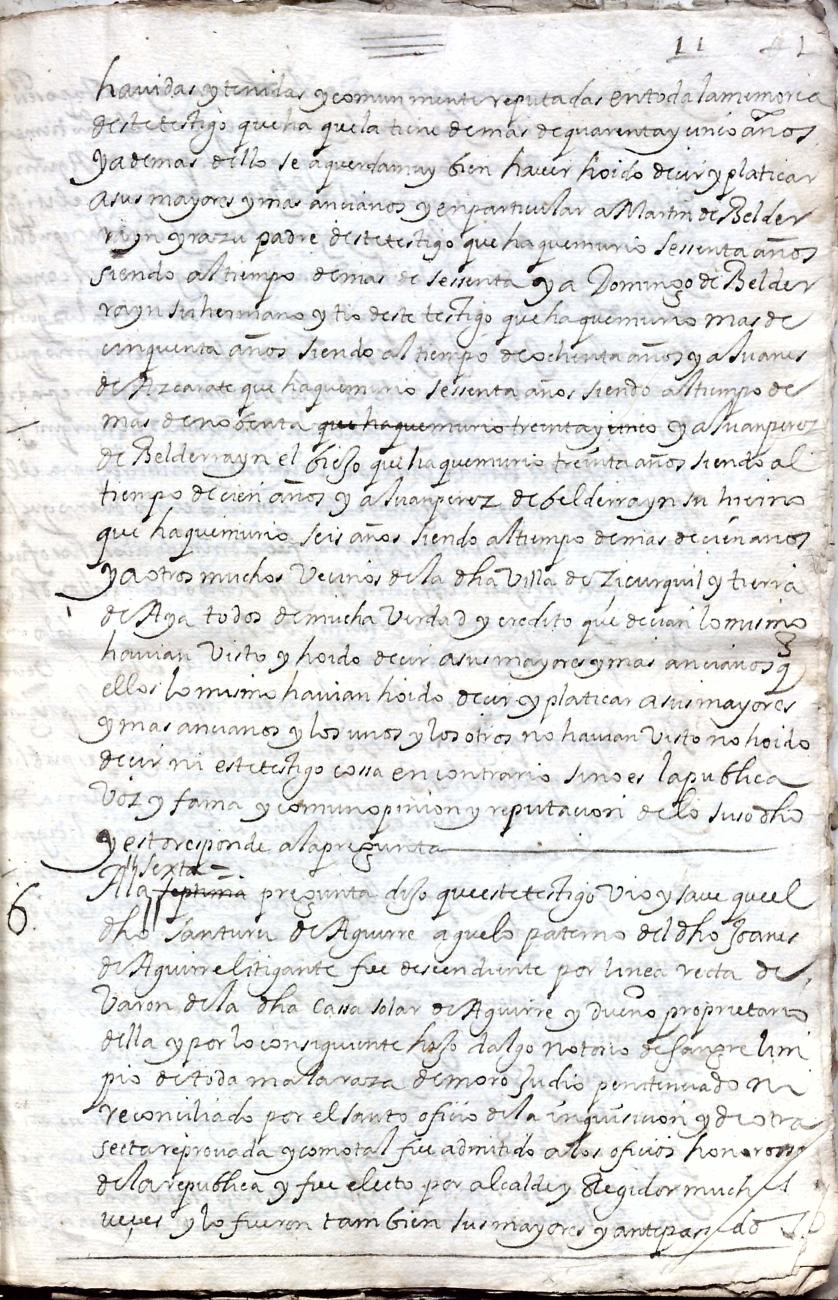 11 41
havidas y tenidas y comunmente reputadas en toda la memoria
deste testigo que ha que la tiene de mas de quarenta y cinco años
y ademas dello se aquerda muy bien haver hoido decir y platicar
a sus mayores y mas ancianos y en particular a Martin de Belder
rayn yrazu padre deste testigo que ha que murio sessenta años
siendo al tiempo de mas de sessenta y a Domingo de Belder
rayn su hermano y tio deste testigo que ha que murio mas de
cinquenta años siendo al tiempo de ochenta años y a Juanes
de Azcarate que ha que murio sessenta años siendo al tiempo de
mas de nobenta que ha que murio treinta y cinco y a Juan perez
de Belderrayn el biejo que ha que murio treinta años siendo al
tiempo de cien años y a Juan perez de belderrayn su
que ha que murio seis años siendo al tiempo de mas de cien años
y a otros muchos Vecinos de la dha Villa de Zicurquil y tierra
de Aya todos de mucha verdad y credito que decian lo mismo
havian visto y hoido decir a sus mayores y mas ancianos q
ellos lo mismo havian hoido decir y platicar a sus mayores
y mas ancianos y los unos y los otros no havian visto no hoido
decir ni este testigo cossa en contrario sino es la publica
voz y fama y comun opinion y reputacion de lo suso dho
y esto responde a la pregunta
sexta
6 A la septima pregunta dijo que este testigo vio y save que el
dho Santuru de Aguirre aguelo paterno del dho Joanes
de Aguirre litigante fue descendiente por linea recta de
varon de la dha Cassa solar de Aguirre y dueño proprietario
della y por lo consiguiente hijo dalgo notorio de sangre lim
pio de toda mala raza de moro Judio penitenciado ni
reconciliado por el santo oficio de la inquisicion y de otra
secta reprovada y como tal fue admitido a los oficios honorosos
de la republica y fue electo por alcalde y Regidor muchas
veçes y lo fueron tambien sus mayores y antepasados